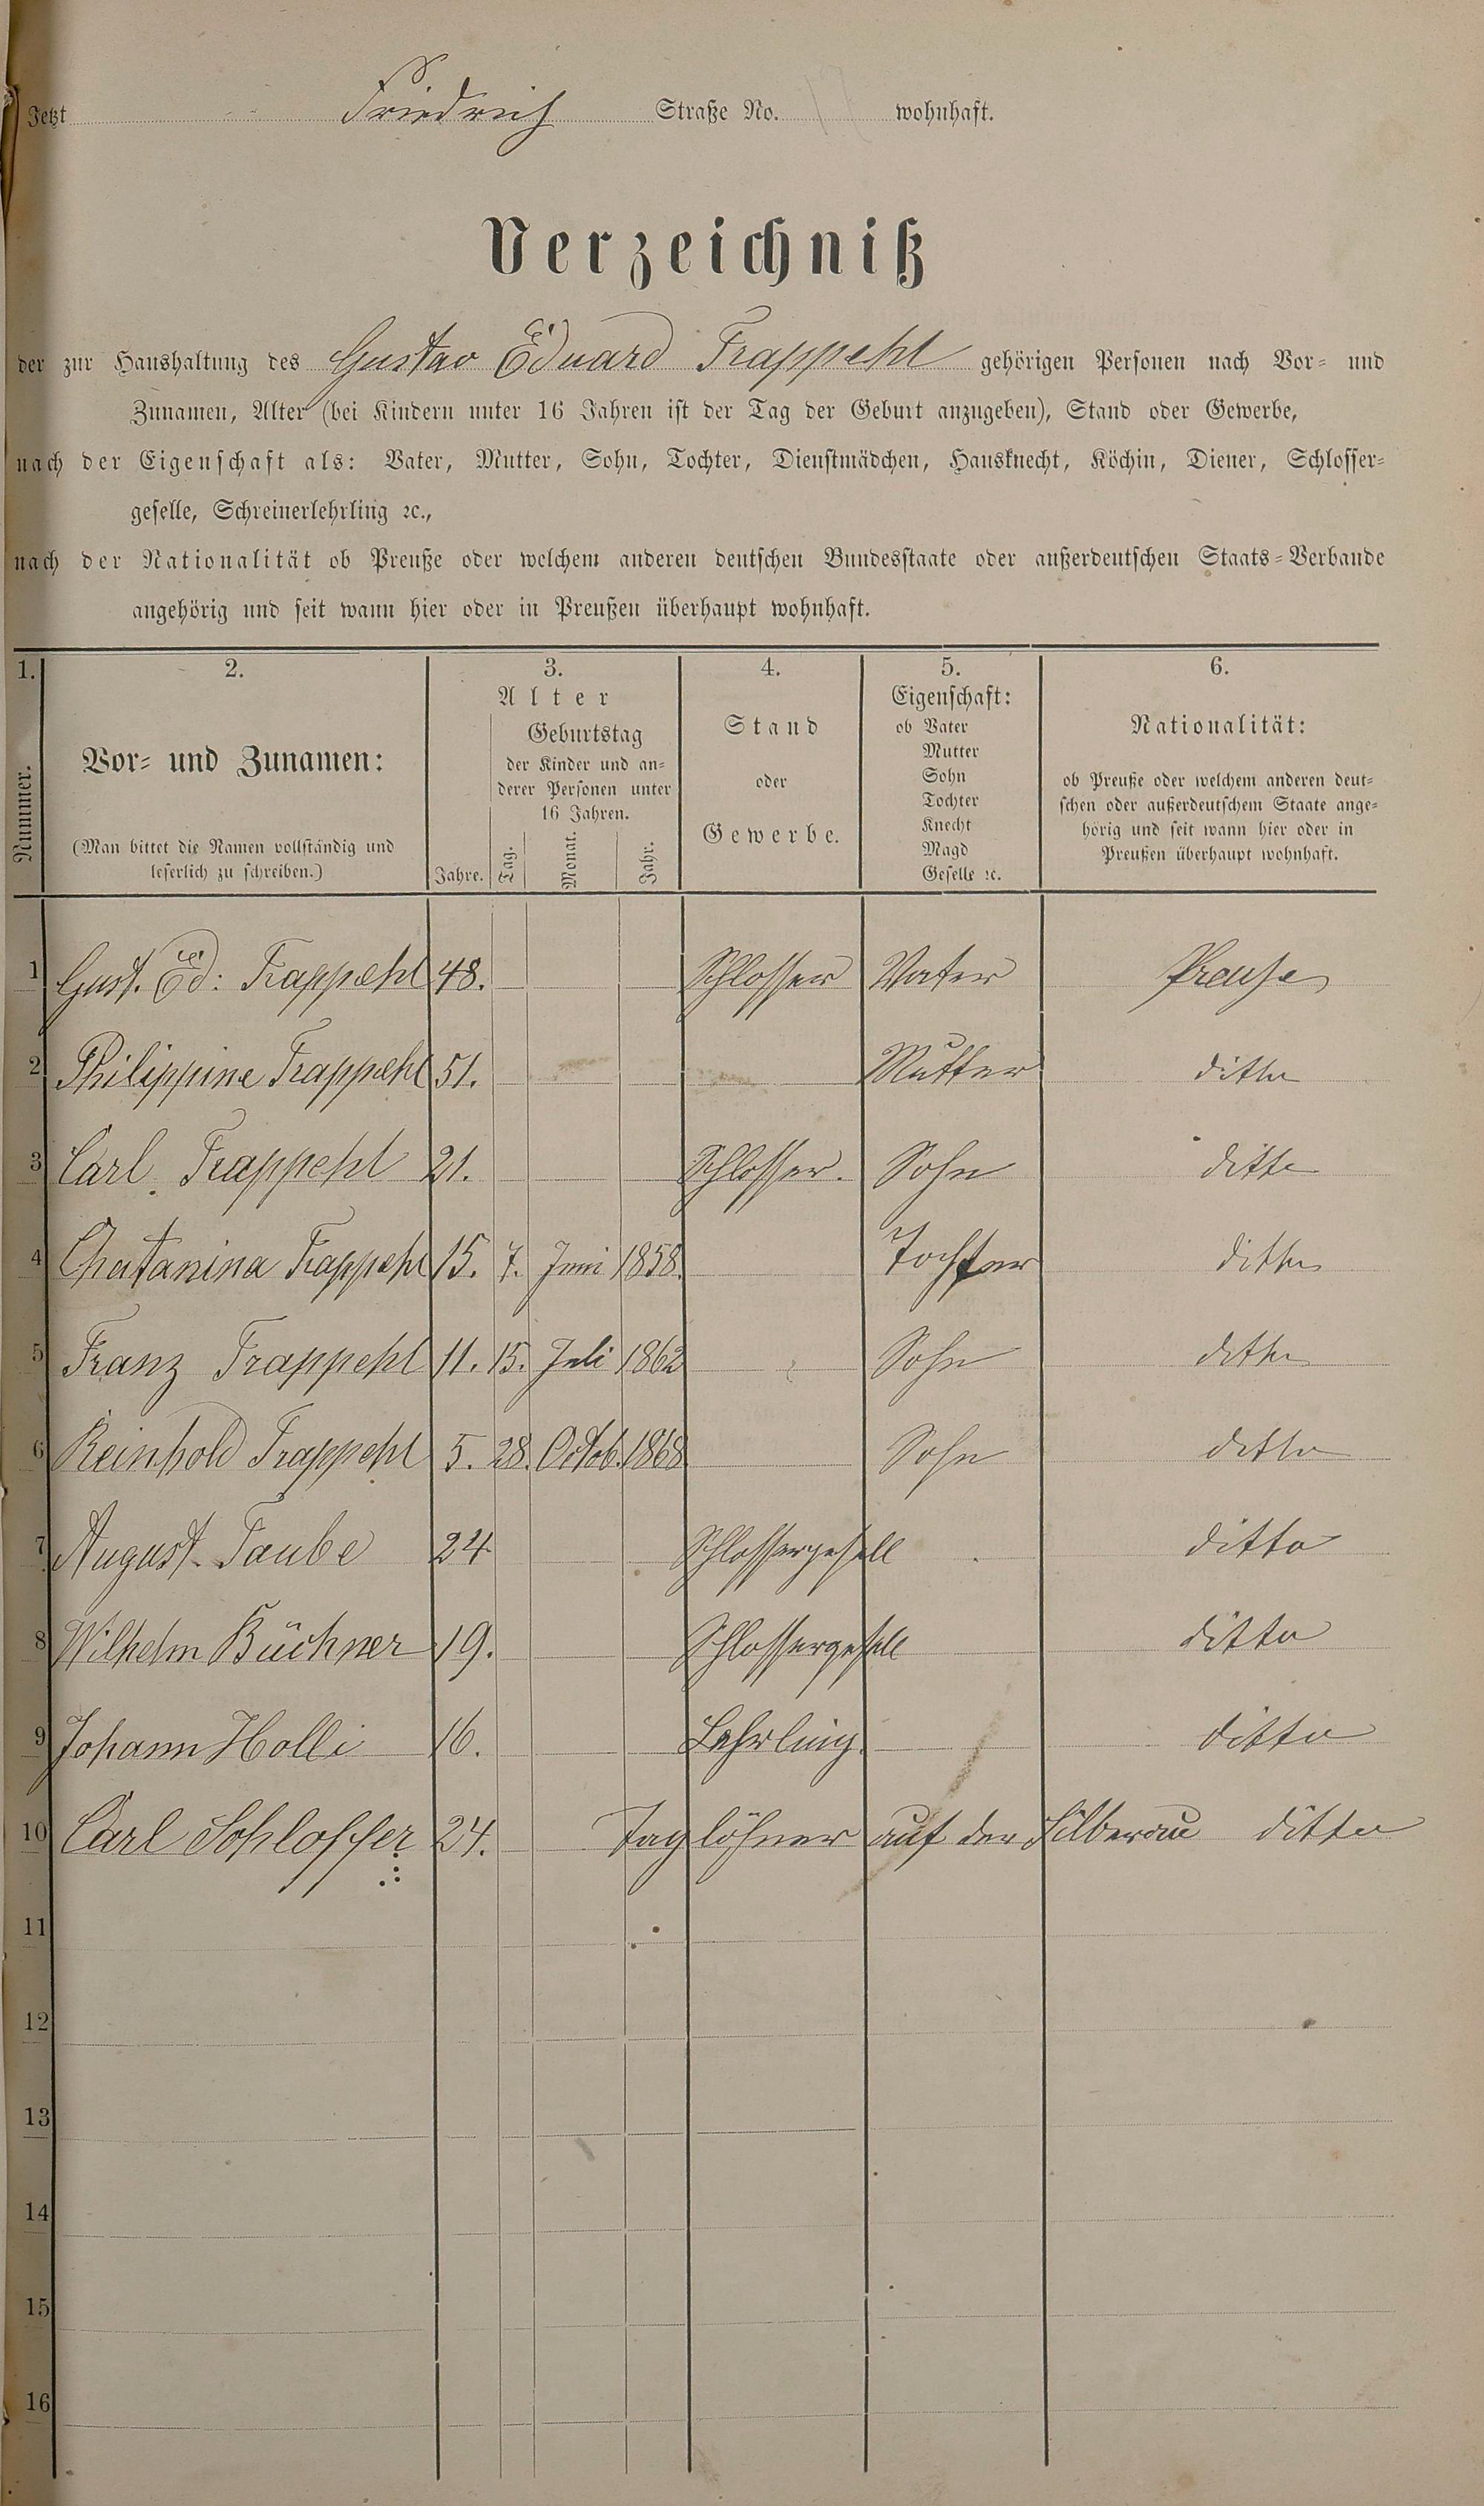 Jetzt Friedrich Straße No. wohnhaft.
Verzeichniß
der zur Haushaltung des Gustav Eduard Trappehl gehörigen Personen nach Vor- und
Zunamen, Alter (bei Kindern unter 16 Jahren ist der Tag der Geburt anzugeben), Stand oder Gewerbe,
nach der Eigenschaft als: Vater, Mutter, Sohn, Tochter, Dienstmädchen, Hausknecht, Köchin, Diener, Schlosser-
geselle, Schreinerlehrling ꝛc.,
nach der Nationalität ob Preuße oder welchem anderen deutschen Bundesstaate oder außerdeutschen Staats-Verbande
angehörig und seit wann hier oder in Preußen überhaupt wohnhaft.
1. 2. 3. 4. 5. 6.
Nummer.
Vor- und Zunamen:
(Man bittet die Namen vollständig und
leserlich zu schreiben.)
Alter
Jahre.
Geburtstag
der Kinder und an-
derer Personen unter
16 Jahren.
Tag. Monat. Jahr.
Stand
oder
Gewerbe.
Eigenschaft:
ob Vater
Mutter
Sohn
Tochter
Knecht
Magd
Geselle ꝛc.
Nationalität:
ob Preuße oder welchem anderen deut-
schen oder außerdeutschem Staate ange-
hörig und seit wann hier oder in
Preußen überhaupt wohnhaft.
1 Gust. Ed: Trappehl 48. Schlosser Vater Preuße
2 Philippine Trappehl 51. Mutter ditto
3 Carl Trappehl 21. Schlosser. Sohn ditto
4 Trappehl 15. 7. Juni 1858. Tochter ditto
5 Franz Trappehl 11. 15. Juli 1862 Sohn ditto
6 Reinhold Trappehl 5. 28. Octob. 1868 Sohn ditto
7 August Taube 24 Schlossergesell ditto
8 Wilhelm Büchner 19. Schlossergesell ditto
9 Johann Holli 16. Lehrling. ditto
10 Carl Schlosser 24. Taglöhner auf der Silberau ditto
11
12
13
14
15
16